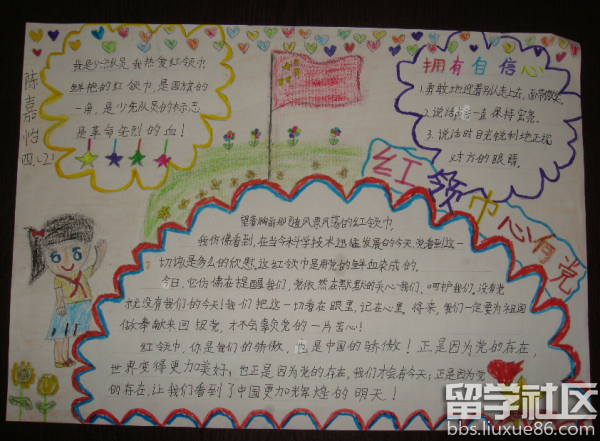 陈嘉怡
四、(2)
我是少先队员,我热爱红领巾
鲜艳的红领巾,是国旗的
一角,是少先队员的标志
是革命先烈的血!
拥有自信心
1.勇敢地迎着别人走上去,面带微笑
2.说话 一直保持宏亮
3.说话时目光锐利地正视
对方的眼睛
红领巾心向党
望着胸前那随风飘荡的红领巾,
我仿佛看到,在当今科学技术迅猛发展的今天,党看到这一
切该是多么的欣慰,这红领巾是用党的鲜血染成的。
今日,它仿佛在提醒我们,党依然在默默的关心我们、呵护我们,没有党
就没有我们的今天!我们把这一切看在眼里,记在心里,将来,我们一定要为祖国
做奉献来回报党,才不会辜负党的一片苦心!
红领巾,你是我们的骄傲,也是中国的骄傲!正是因为党的存在,
世界变得更加美好;也正是因为党的存在,我们才会有今天;正是因为党
的存在,让我们看到了中国更加辉煌的明天!
留学社区
bbs.liuxue86.com